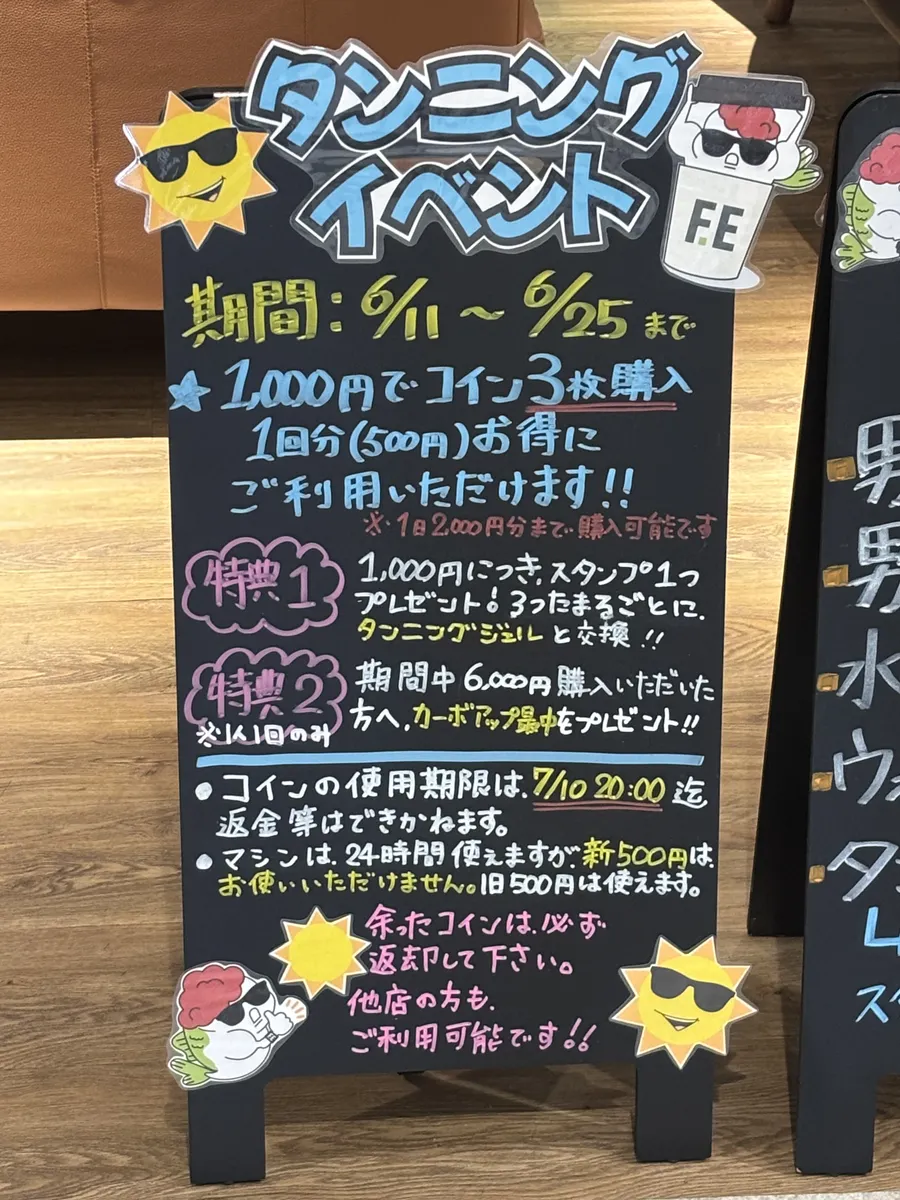 タンニング
イベント
F.E
期間:6/11〜6/25まで
★1,000円でコイン3枚購入
1回分(500円)お得に
ご利用いただけます!!
※1日2,000円分まで購入可能です
特典1
1,000円につき、スタンプ1つ
プレゼント!3つたまるごとに、
タンニングジェルと交換!!
特典2
※1人1回のみ
期間中6,000円購入いただいた
方へ、カーボアップ最中をプレゼント!!
●コインの使用期限は、7/10 20:00迄
返金等はできかねます。
●マシンは、24時間使えますが、新500円は、
お使いいただけません。旧500円は使えます。
余ったコインは、必ず
返却して下さい。
他店の方も、
ご利用可能です!!
男
男
水
ウ
タ
ス